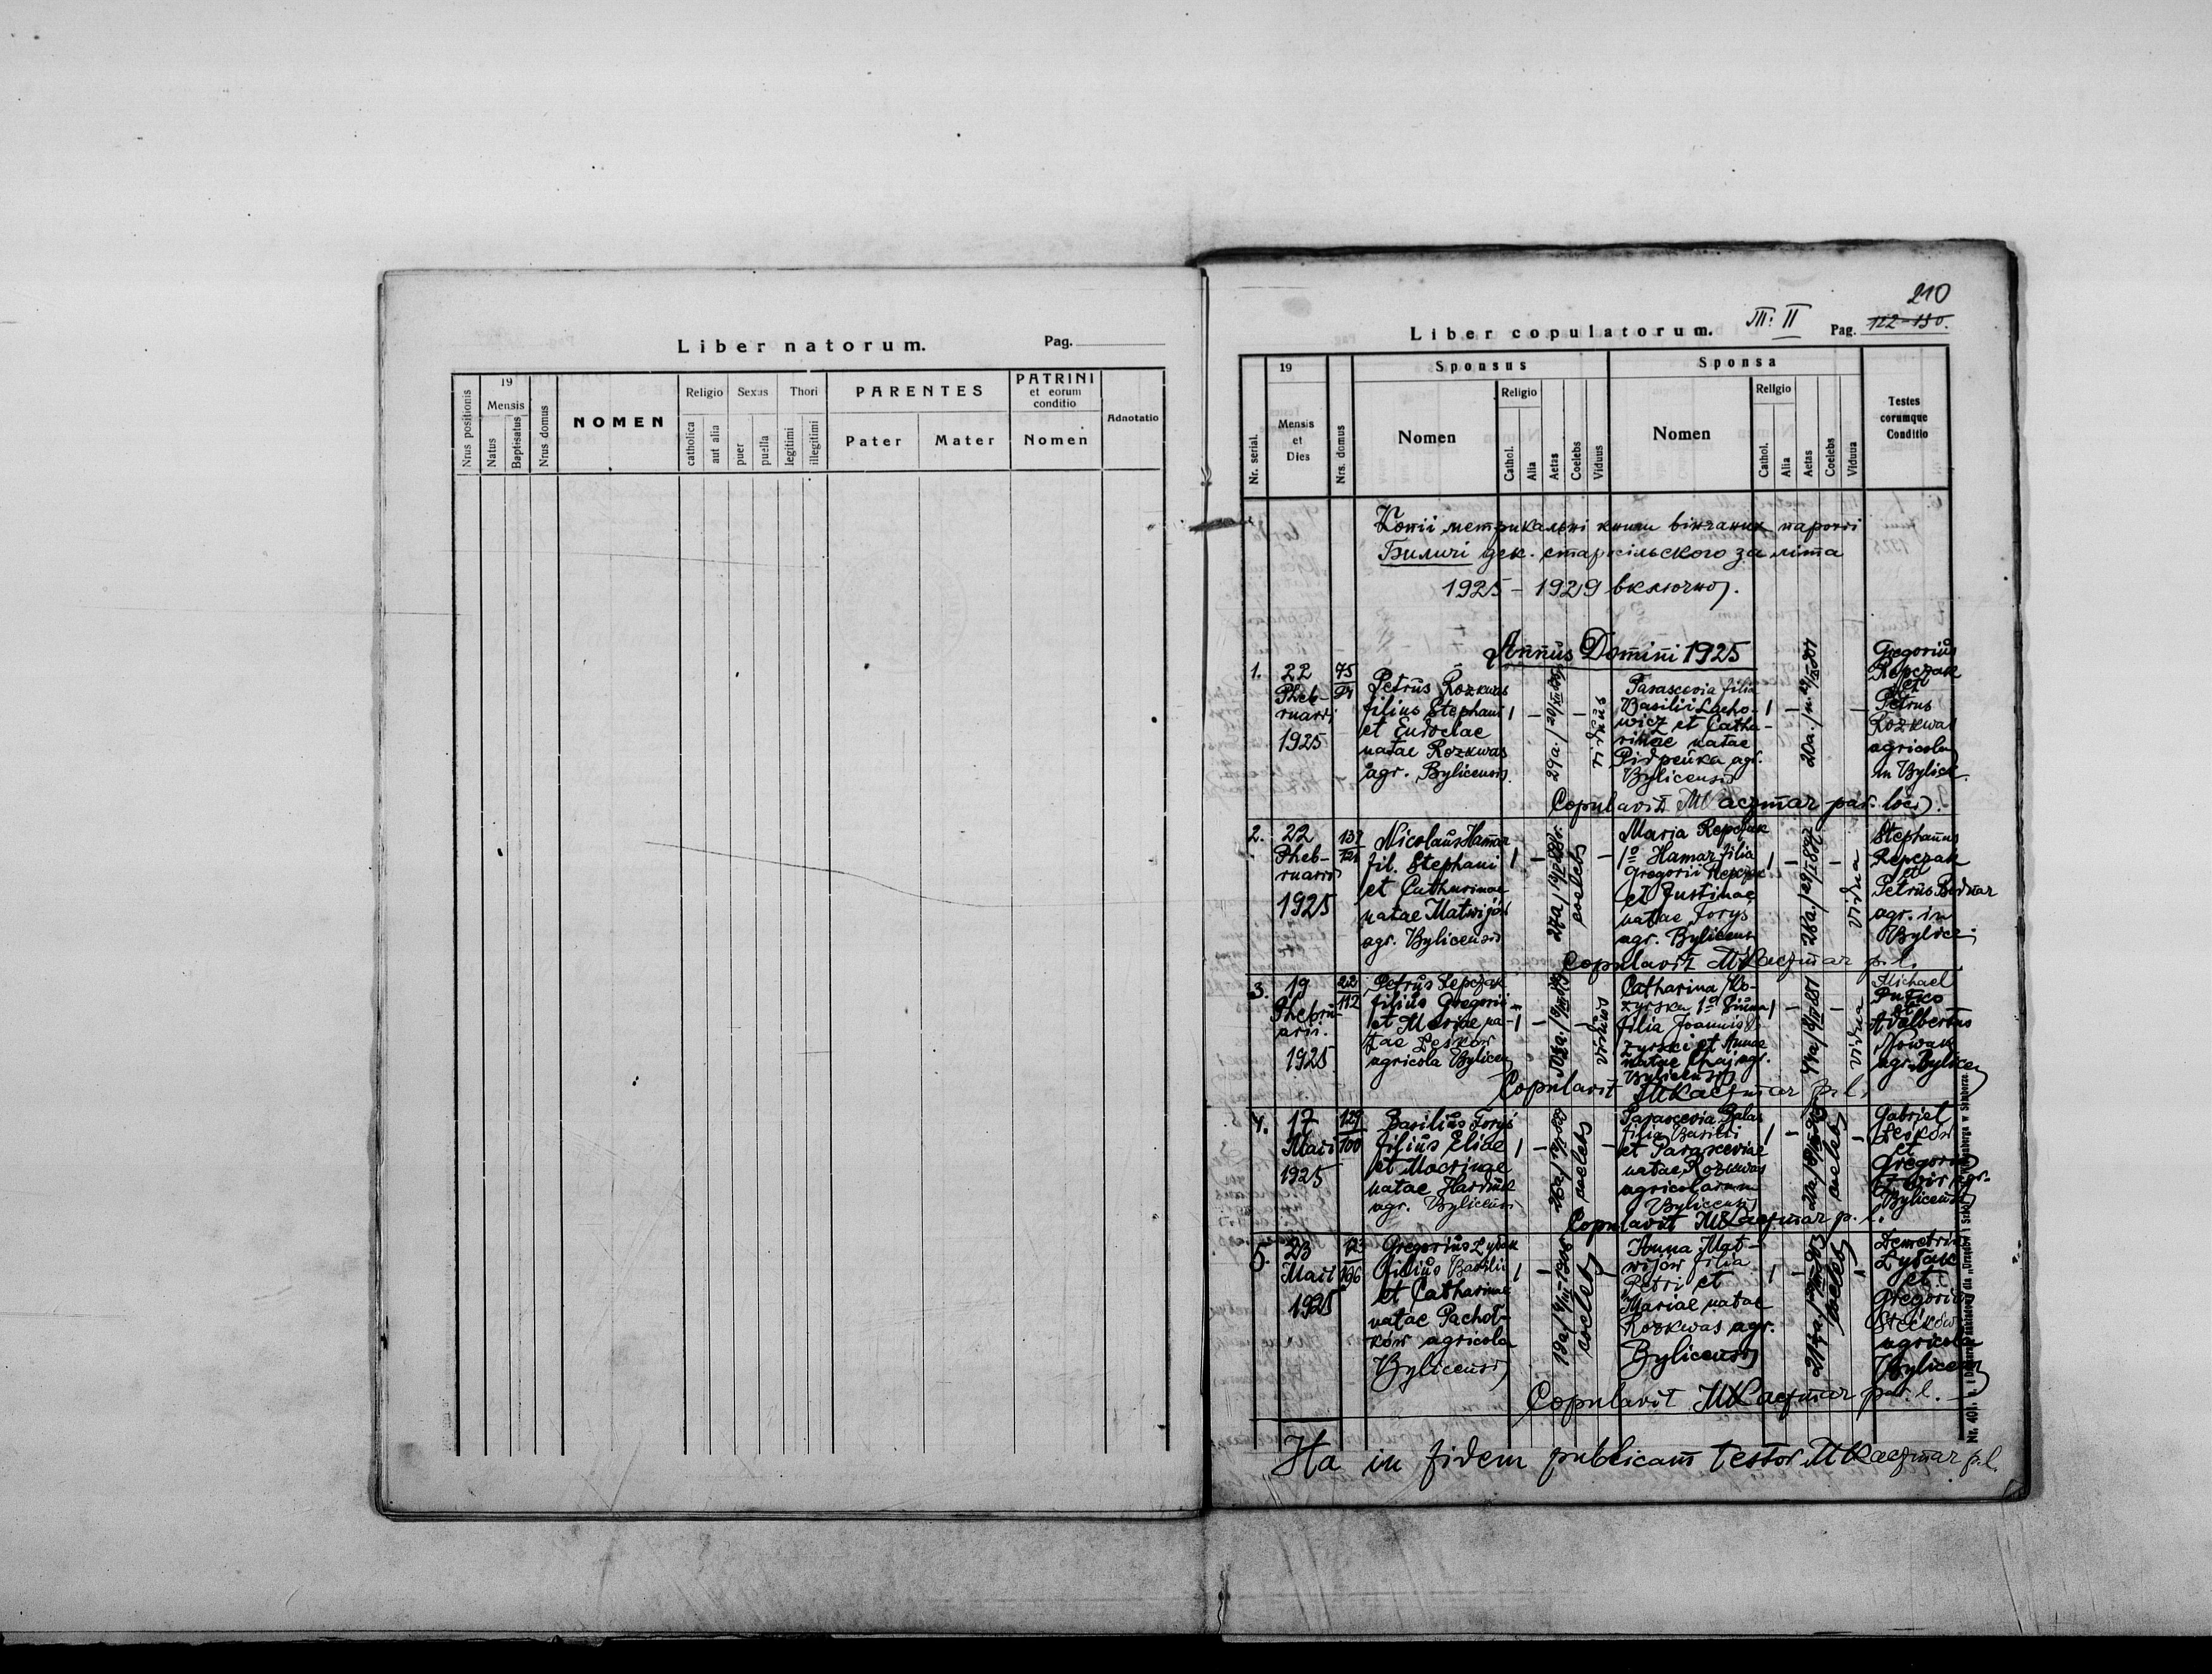 Liber natorum.
Pag.
Nrus positionis
19
Mensis
Natus
Baptisatus
Nrus domus
NOMEN
Religio
catholica
aut alia
Sexus
puer
puella
Thori
legitimi
illegitimi
PARENTES
Pater
Mater
PATRINI
et eorum
conditio
Nomen
Adnotatio
210
Liber copulatorum.
III: II
Pag. 122-130.
Nr. serial.
19
Mensis
et
Dies
Nrs. domus
Sponsus
Nomen
Religio
Cathol.
Alia
Aetas
Coelebs
Viduus
Sponsa
Nomen
Religio
Cathol.
Alia
Aetas
Coelebs
Vidua
Testes
eorumque
Conditio
Копії метрикальні книги вінчаних парохії
Биличі дек. старосільского за літа
1925 – 1929 включно.
Annus Domini 1925
1.
22
Pheb-
ruarii
1925
75
Petrus Rozkwas
filius Stephani
et Eudoclae
natae Rozkwas
agr. Bylicensis
29 a.
viduus
Parascevia filia
Basilii Lacho-
wicz et Catha-
rinae natae
Pidpeuka agr.
Bylicensis
20 a.
Gregorius
Repczak
et
Petrus
Rozkwas
agricolae
in Bylice
Copulavit MKaczmar par. loci.
2.
22
Pheb-
ruarii
1925
Nicolaus Hamar
fil. Stephani
et Catharinae
natae Matwijów
agr. Bylicensis
27 a
coelebs
Maria Repczak
1º Hamar filia
Gregorii Repczak
et Justinae
natae Forys
agr. Bylicens
28 a.
vidua
Stephanus
Repczak
et
Petrus Bodnar
agr. in
Bylice
Copulavit MKaczmar p. l.
3.
19
Phebru-
arii
1925
22
112
Petrus Repczak
filius Gregorii
et Mariae na-
tae Leskow
agricola Bylicen
viduus
Catharina Ko-
zyrska
filia Joannis Ko-
zyrski et Annae
natae Chaj agr.
Bylicensis
44 a
vidua
Michael
Putko
et
Adalbertus
Nowak
agr. Bylicen
Copulavit MKaczmar p. l.
4.
17
Maii
1925
129
100
Basilius Forys
filius Eliae
et Macrinae
natae Harduk
agr. Bylicensis
26 a
coelebs
Parascevia Balas
filia Basilii
et Parasceviae
natae Rozkwas
agricolarum
Bylicensis
coelebs
Gabriel
Leskow
et
Gregorius
agr.
Bylicensis
Copulavit MKaczmar p. l.
5.
23
Maii
1925
Gregorius Lysak
filius Basilii
et Catharinae
natae Pachol-
ków agricola
Bylicensis
19 a
coelebs
Anna Mat-
wijów filia
Petri et
Mariae natae
Rozkwas agr.
Bylicensis
21 a
coelebs
Demetrius
Lysak
et
Gregorius
Steckow
agricolae
Bylicen
Copulavit MKaczmar par. l.
Ita in fidem publicam testor MKaczmar p. l.